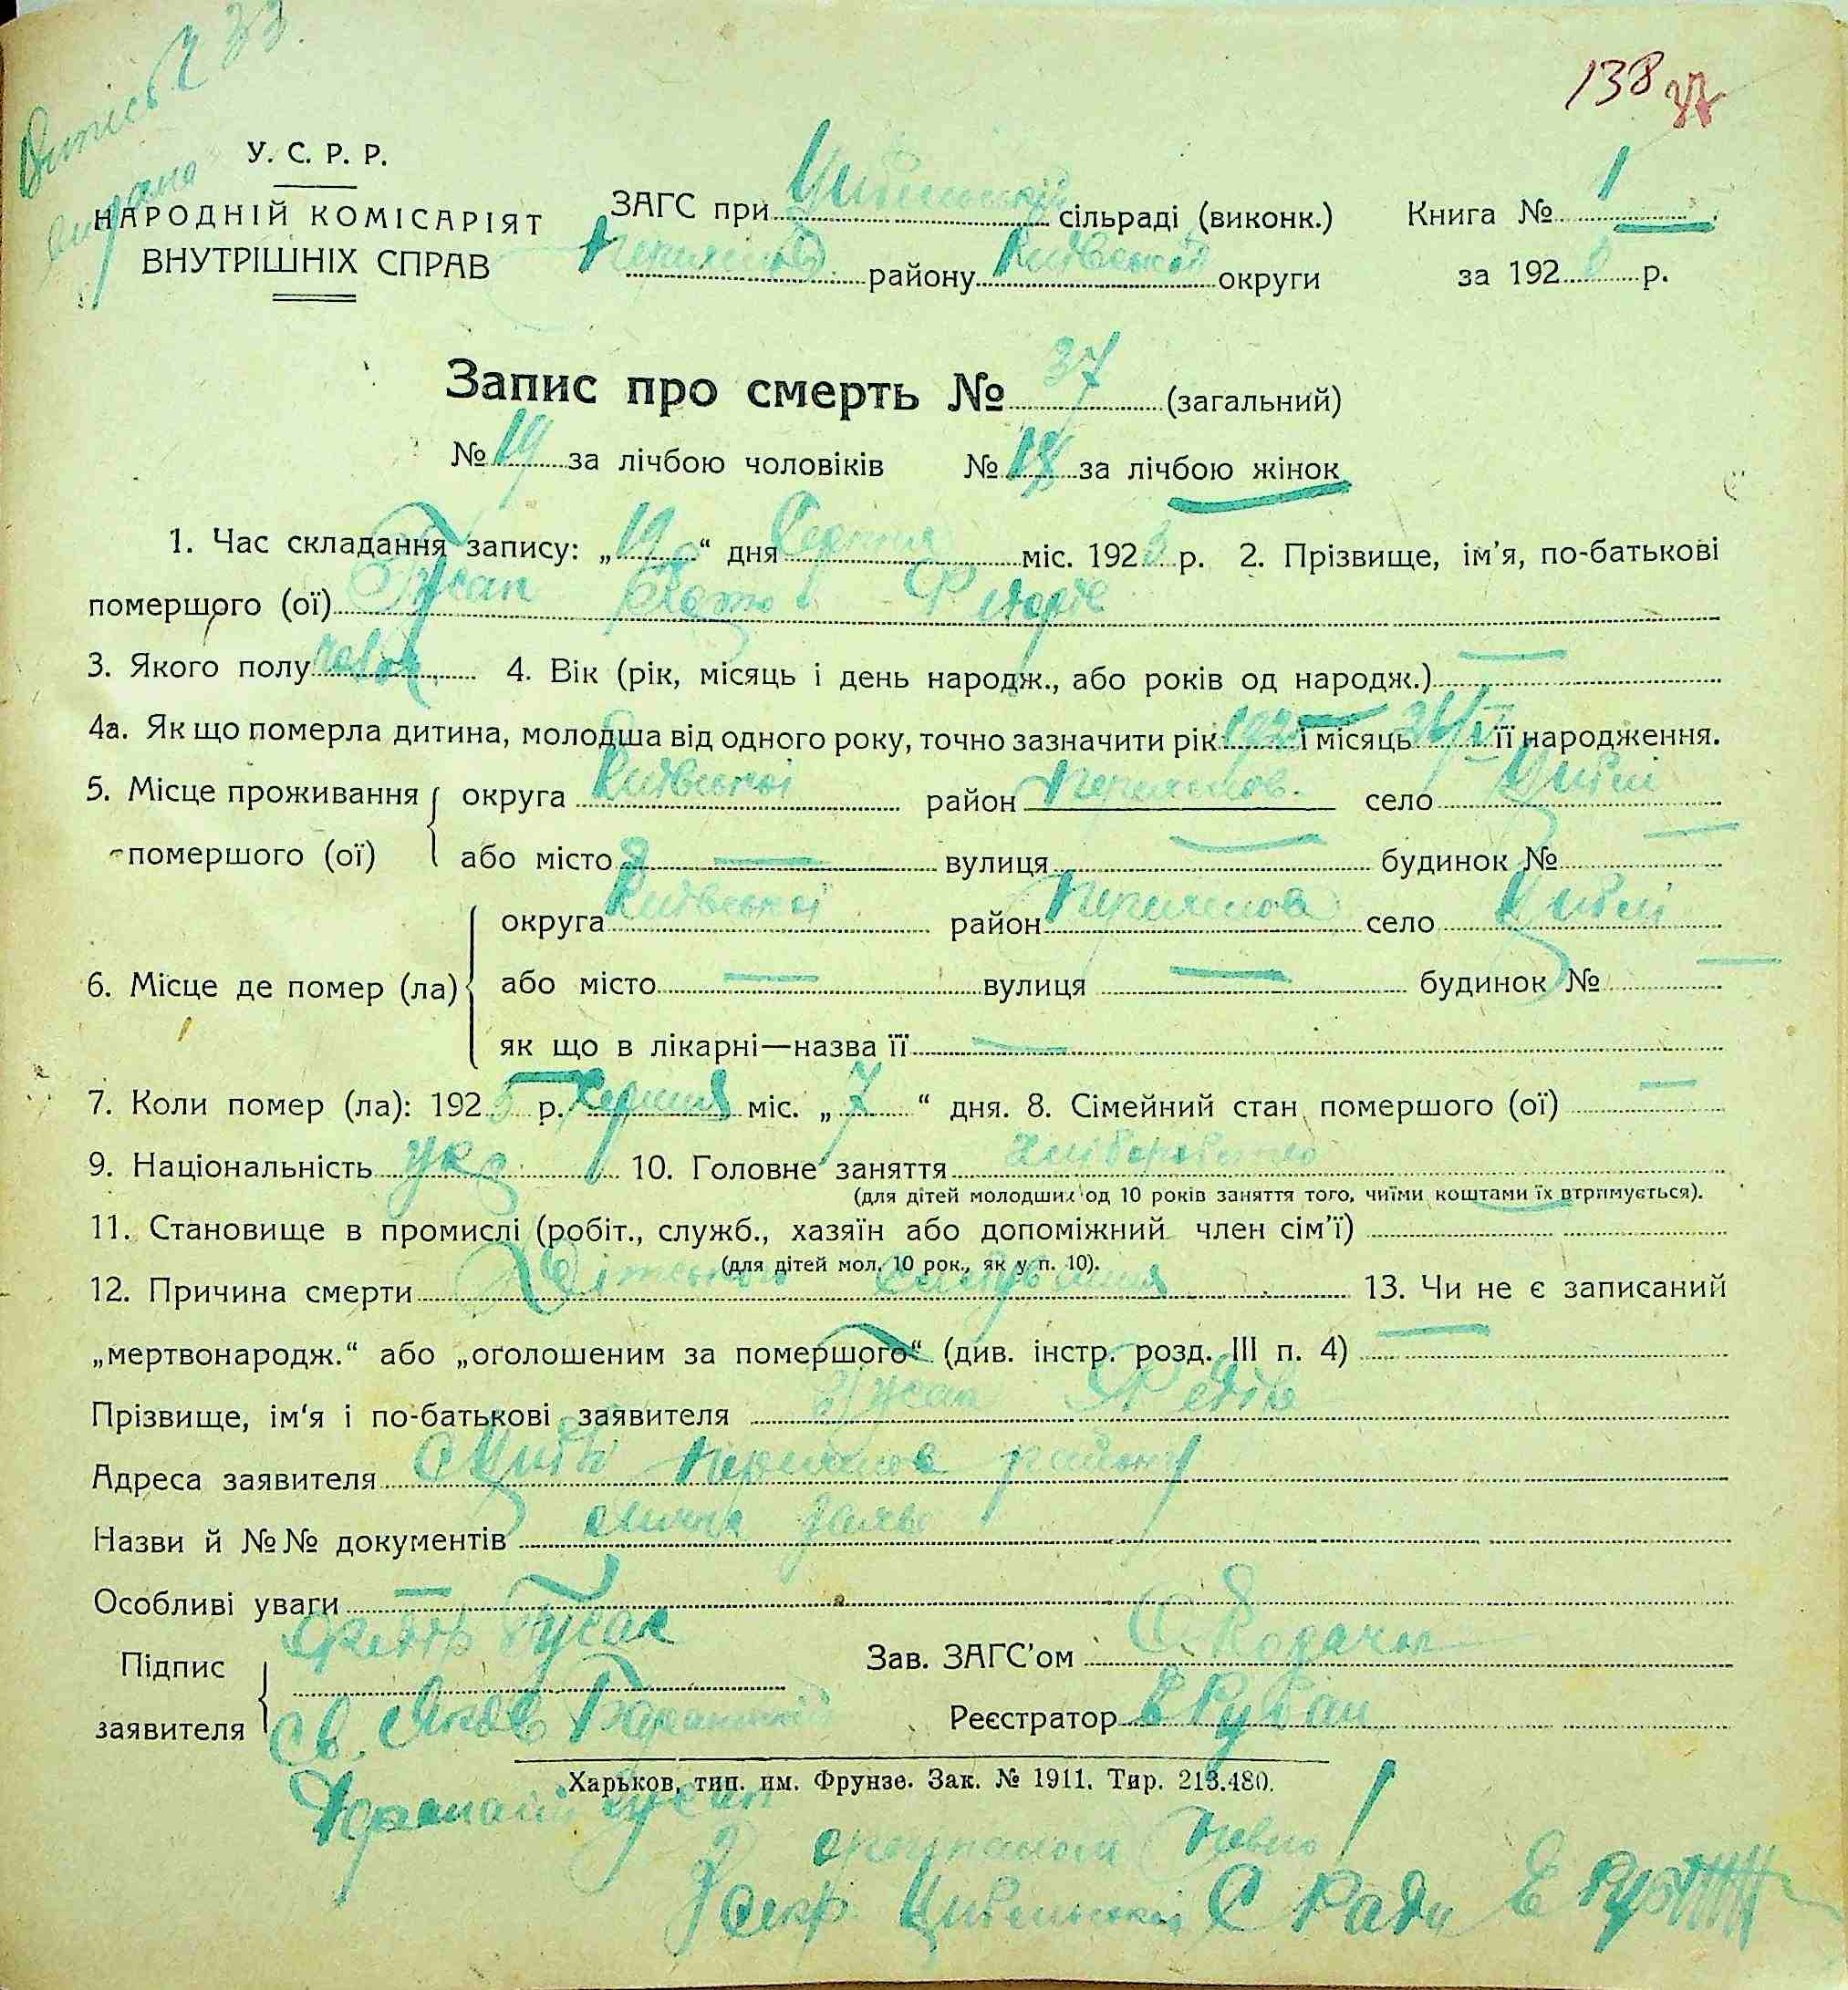 138
У. С. Р. Р.
НАРОДНІЙ КОМІСАРІЯТ
ВНУТРІШНІХ СПРАВ
ЗАГС при Цибельскій сільраді (виконк.)
Переяслов району Київської округи
Книга № 1
за 192 р.
Запис про смерть № 37 (загальний)
№ 19 за лічбою чоловіків № 18 за лічбою жінок
1. Час складання запису: „19“ дня Серпня міс. 192 р. 2. Прізвище, ім'я, по-батькові
помершого (ої) Гусап Федорів
3. Якого полу чолов. 4. Вік (рік, місяць і день народж., або років од народж.) —
4а. Як що померла дитина, молодша від одного року, точно зазначити рік 1925 і місяць її народження.
5. Місце проживання помершого (ої) { округа Київської район Переяслов. село Циблі
або місто — вулиця — будинок № —
6. Місце де помер (ла) { округа Київської район Переяслов село Циблі
або місто — вулиця — будинок № —
як що в лікарні—назва її —
7. Коли помер (ла): 1925 р. Серпня міс. „7“ дня. 8. Сімейний стан помершого (ої) —
9. Національність укр 10. Головне заняття хліборобство
(для дітей молодших од 10 років заняття того, чиїми коштами їх втримується).
11. Становище в промислі (робіт., служб., хазяїн або допоміжний член сім'ї) —
(для дітей мол. 10 рок., як у п. 10).
12. Причина смерти Дітського слабування 13. Чи не є записаний
„мертвонародж.“ або „оголошеним за помершого“ (див. інстр. розд. III п. 4) —
Прізвище, ім'я і по-батькові заявителя Гусап Федір
Адреса заявителя с Циблі Переяслов району
Назви й №№ документів лична заява
Особливі уваги —
Підпис заявителя { Федір Гусап
св. Яков
Зав. ЗАГС'ом
Реєстратор Е Рубан
Харьков, тип. им. Фрунзе. Зак. № 1911. Тир. 213.480.
Гусап
з оригіналом вірно
Секр. Цибельської С Ради Е Руб